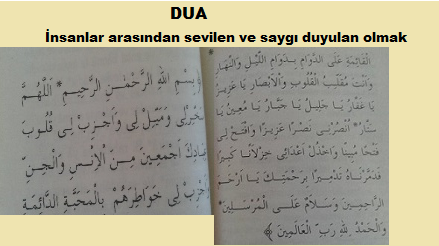 DUA
İnsanlar arasından sevilen ve saygı duyulan olmak
وَبِسْمِ اللهِ الرَّحْمٰنِ الرَّحِيمِ * اَللّٰهُمَّ
سَخِّرْلِى وَمَيِّلْ لِى وَاجْذِبْ لِى قُلُوبَ
عِبَادِكَ اَجْمَعِينَ مِنَ الْاِنْسِ وَالْجِنِّ
وَاجْذِبْ لِى خَوَاطِرَهُمْ بِالْمَحَبَّةِ الدَّائِمَةِ
الْقَائِمَةِ عَلَى الدَّوَامِ بِدَوَامِ اللَّيْلِ وَالنَّهَارِ
وَاَنْتَ مُقَلِّبُ الْقُلُوبِ وَالْاَبْصَارِ يَا عَزِيزُ
يَا غَفَّارُ يَا جَلِيلُ يَا جَبَّارُ يَا مُعِينُ يَا
سَتَّارُ * اُنْصُرْنِى نَصْرًا عَزِيزًا وَافْتَحْ لِى
فَتْحًا مُبِينًا وَاخْذُلْ اَعْدَائِى خِزْلَانًا كَبِيرًا
فَدَمَّرْنَاهُ تَدْمِيرًا بِرَحْمَتِكَ يَا اَرْحَمَ
الرَّاحِمِينَ وَسَلَامٌ عَلَى الْمُرْسَلِينَ *
وَالْحَمْدُ لِلّٰهِ رَبِّ الْعَالَمِينَ ﴾